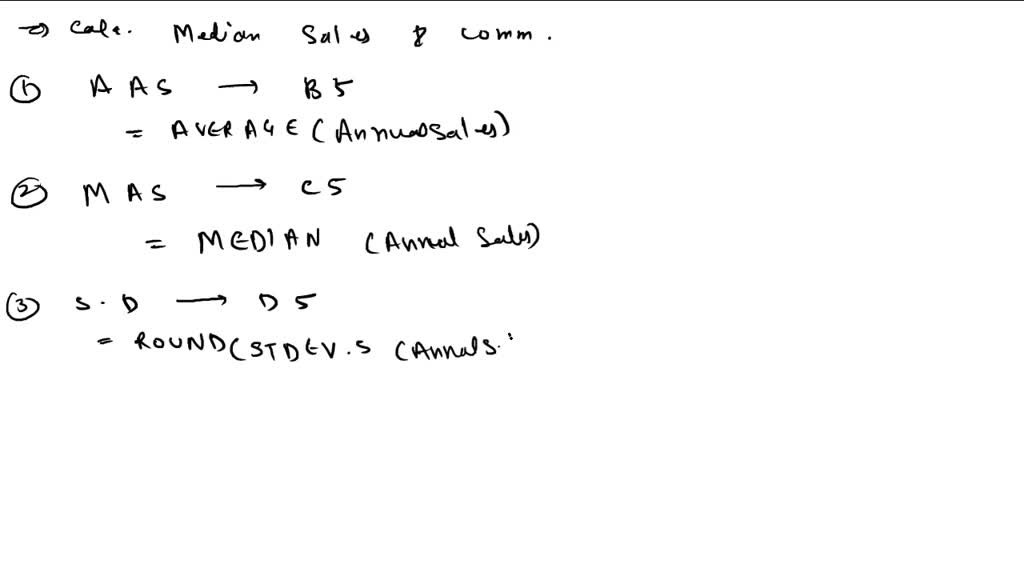 → Calc. Median Sales & comm.
① A A S → B5
= AVERAGE (Annualsales)
② M A S → C5
= MEDIAN (Annual Sales)
③ S.D → D5
= ROUND(STDEV.S (Annals.